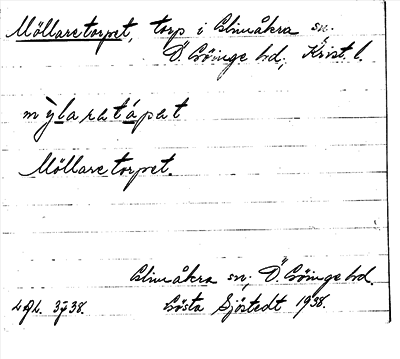 Möllaretorpet, torp i Glimåkra sn.
Ö. Göinge hd., Krist. l.
mỳlaratápat
Möllaretorpet.
Glimåkra sn, Ö. Göinge hd.
38. Gösta Sjöstedt 1938.